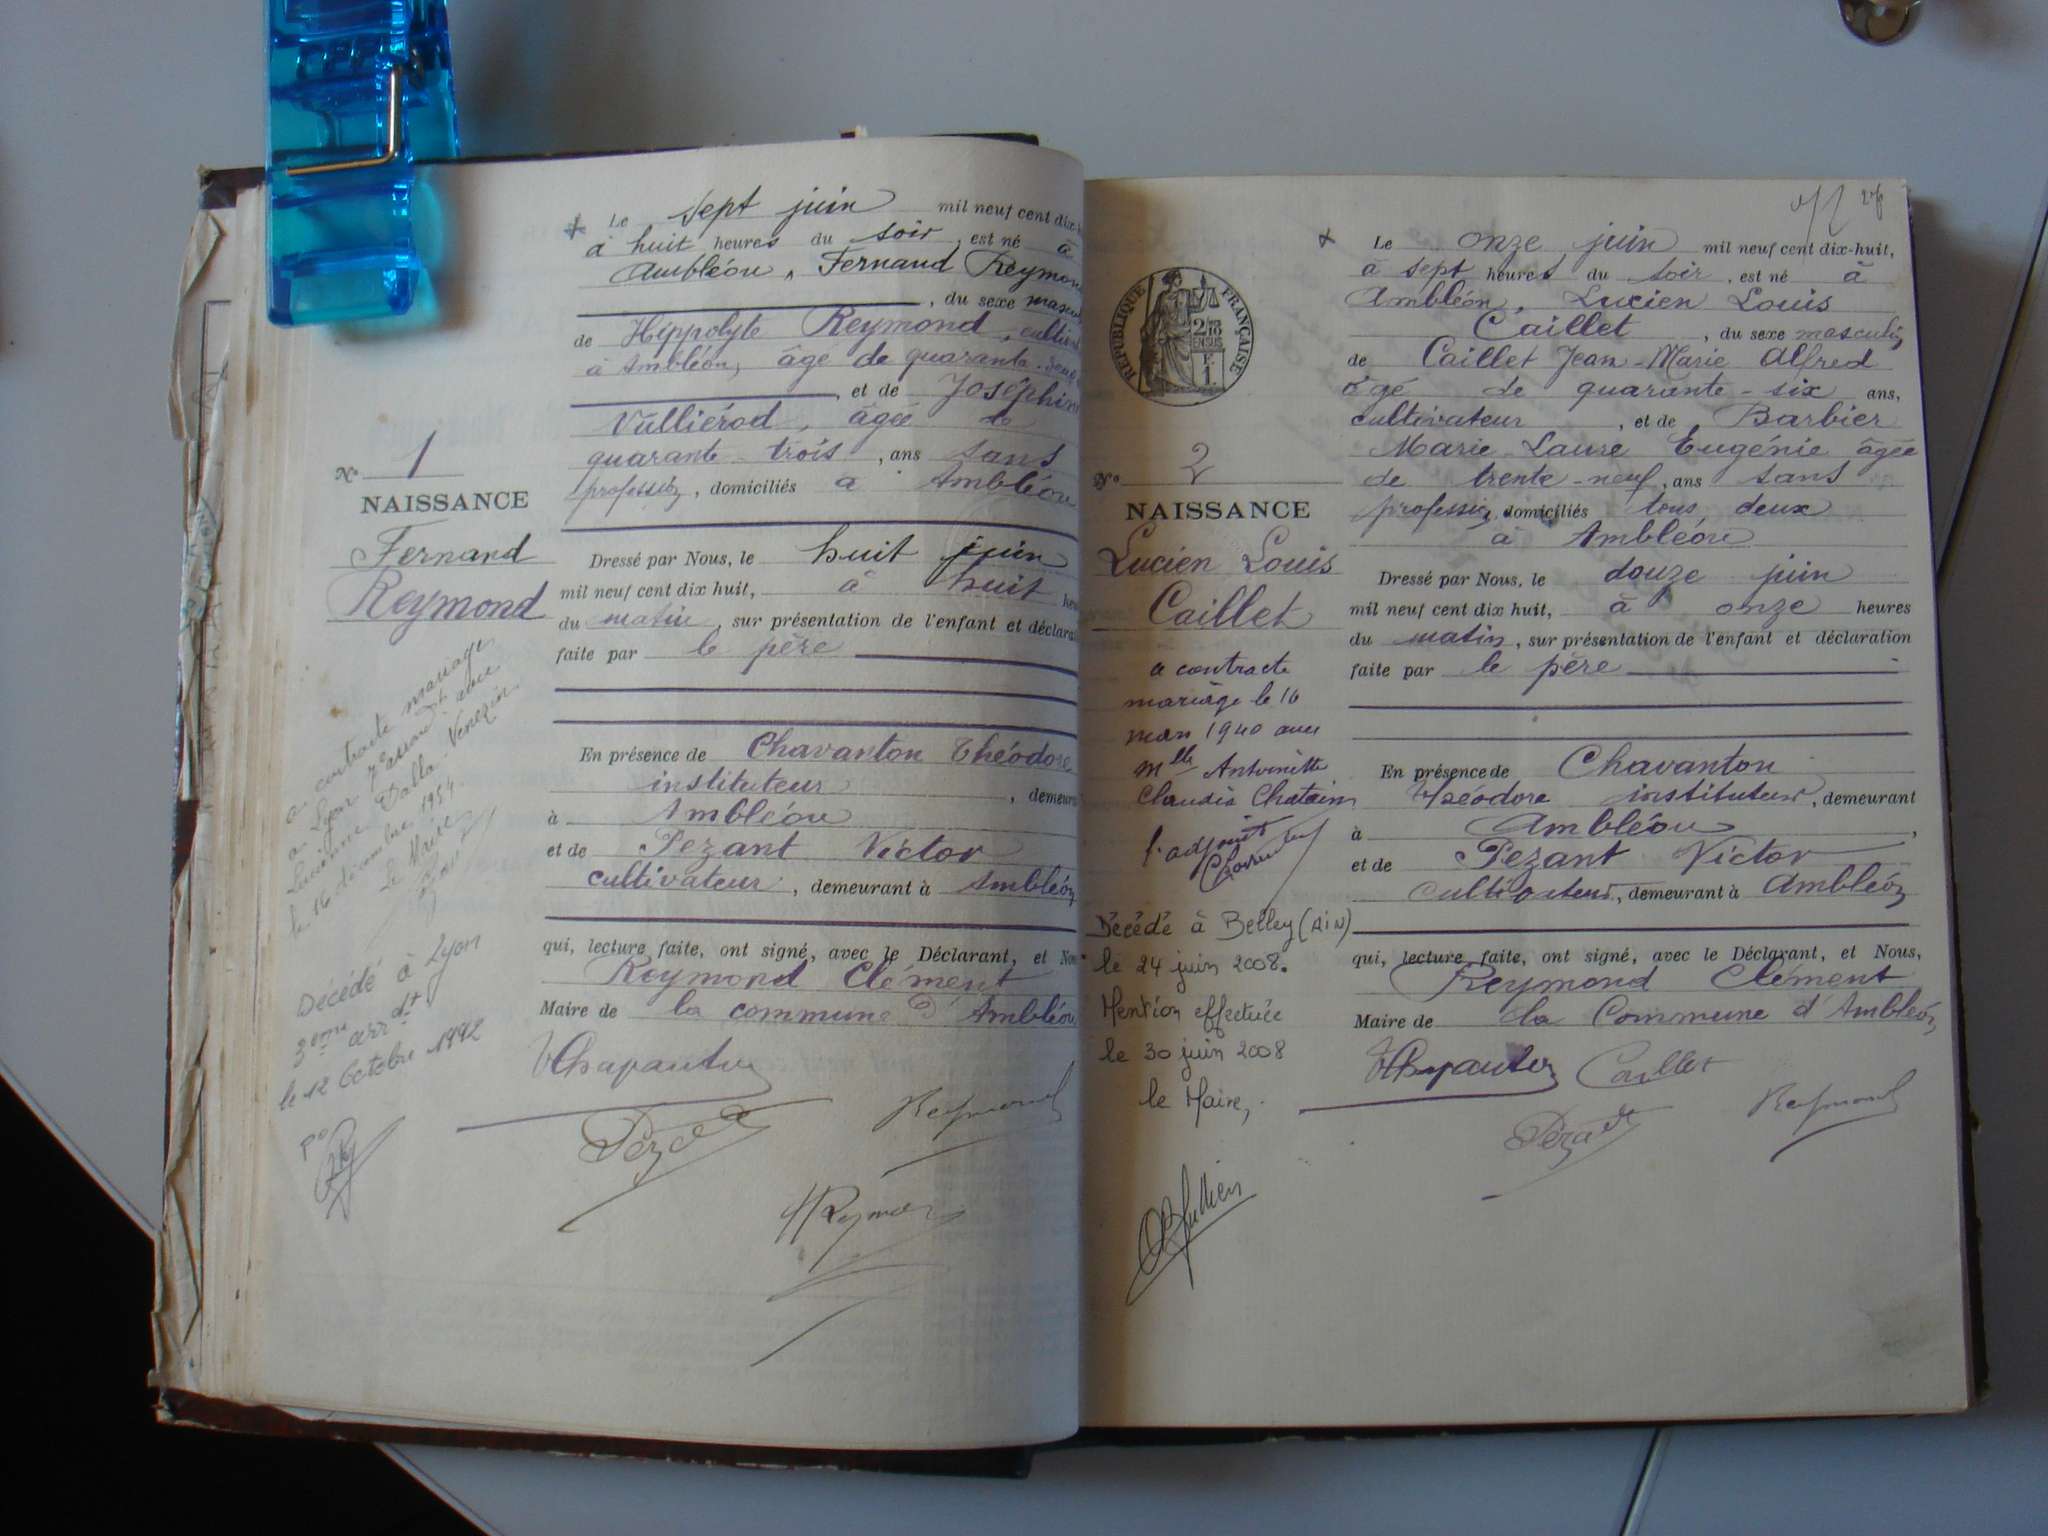 Le sept juin mil neuf cent dix-
à huit heures du soir, est né à
Ambléon, Fernand Reymon
, du sexe mascu
de Hippolyte Reymond, cultiva
à Ambléon, âgé de quarante-deux
, et de Joséphine
Vulliérod, âgée de
quarante-trois, ans sans
profession, domiciliés à Ambléon
No 1
NAISSANCE
Fernand
Reymond
Dressé par Nous, le huit juin
mil neuf cent dix huit, à huit heu
du matin, sur présentation de l'enfant et déclara
faite par le père
a contracté mariage
à Lyon 7e avec
Lucienne Dalla-Venezia
le 16 décembre 1954.
Le Maire
En présence de Chavanton Théodore
instituteur, demeura
à Ambléon
et de Pezant Victor
cultivateur, demeurant à Ambléon
qui, lecture faite, ont signé, avec le Déclarant, et Nous
Reymond Clément
Maire de la commune d'Ambléon
Décédé à Lyon
3eme arrdt
le 12 Octobre 1992
Po
Chavanton
Pezant
Reymond
H Reymond
27
Le onze juin mil neuf cent dix-huit,
à sept heures du soir, est né à
Ambléon, Lucien Louis
Caillet, du sexe masculin
de Caillet Jean-Marie Alfred
âgé de quarante-six ans,
cultivateur, et de Barbier
Marie Laure Eugénie âgée
de trente-neuf, ans sans
profession, domiciliés tous deux
à Ambléon
RÉPUBLIQUE FRANÇAISE
2/10
EN SUS
F.
1.
No 2
NAISSANCE
Lucien Louis
Caillet
Dressé par Nous, le douze juin
mil neuf cent dix huit, à onze heures
du matin, sur présentation de l'enfant et déclaration
faite par le père
a contracté
mariage le 16
mars 1940 avec
Mlle Antoinette
Claudia Chatain
l'adjoint
En présence de Chavanton
Théodore instituteur, demeurant
à Ambléon,
et de Pezant Victor
cultivateur, demeurant à Ambléon
qui, lecture faite, ont signé, avec le Déclarant, et Nous,
Reymond Clément
Maire de la Commune d'Ambléon
Décédé à Belley (AIN)
le 24 juin 2008.
Mention effectuée
le 30 juin 2008
le Maire,
Chavanton Caillet
Pezant
Reymond